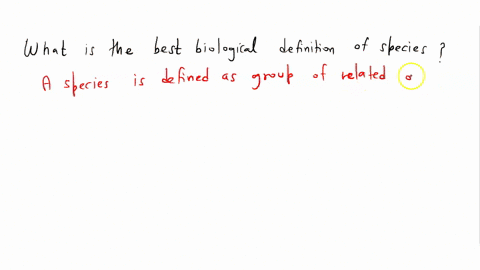 What is the best biological definition of species ?
A species is defined as group of related